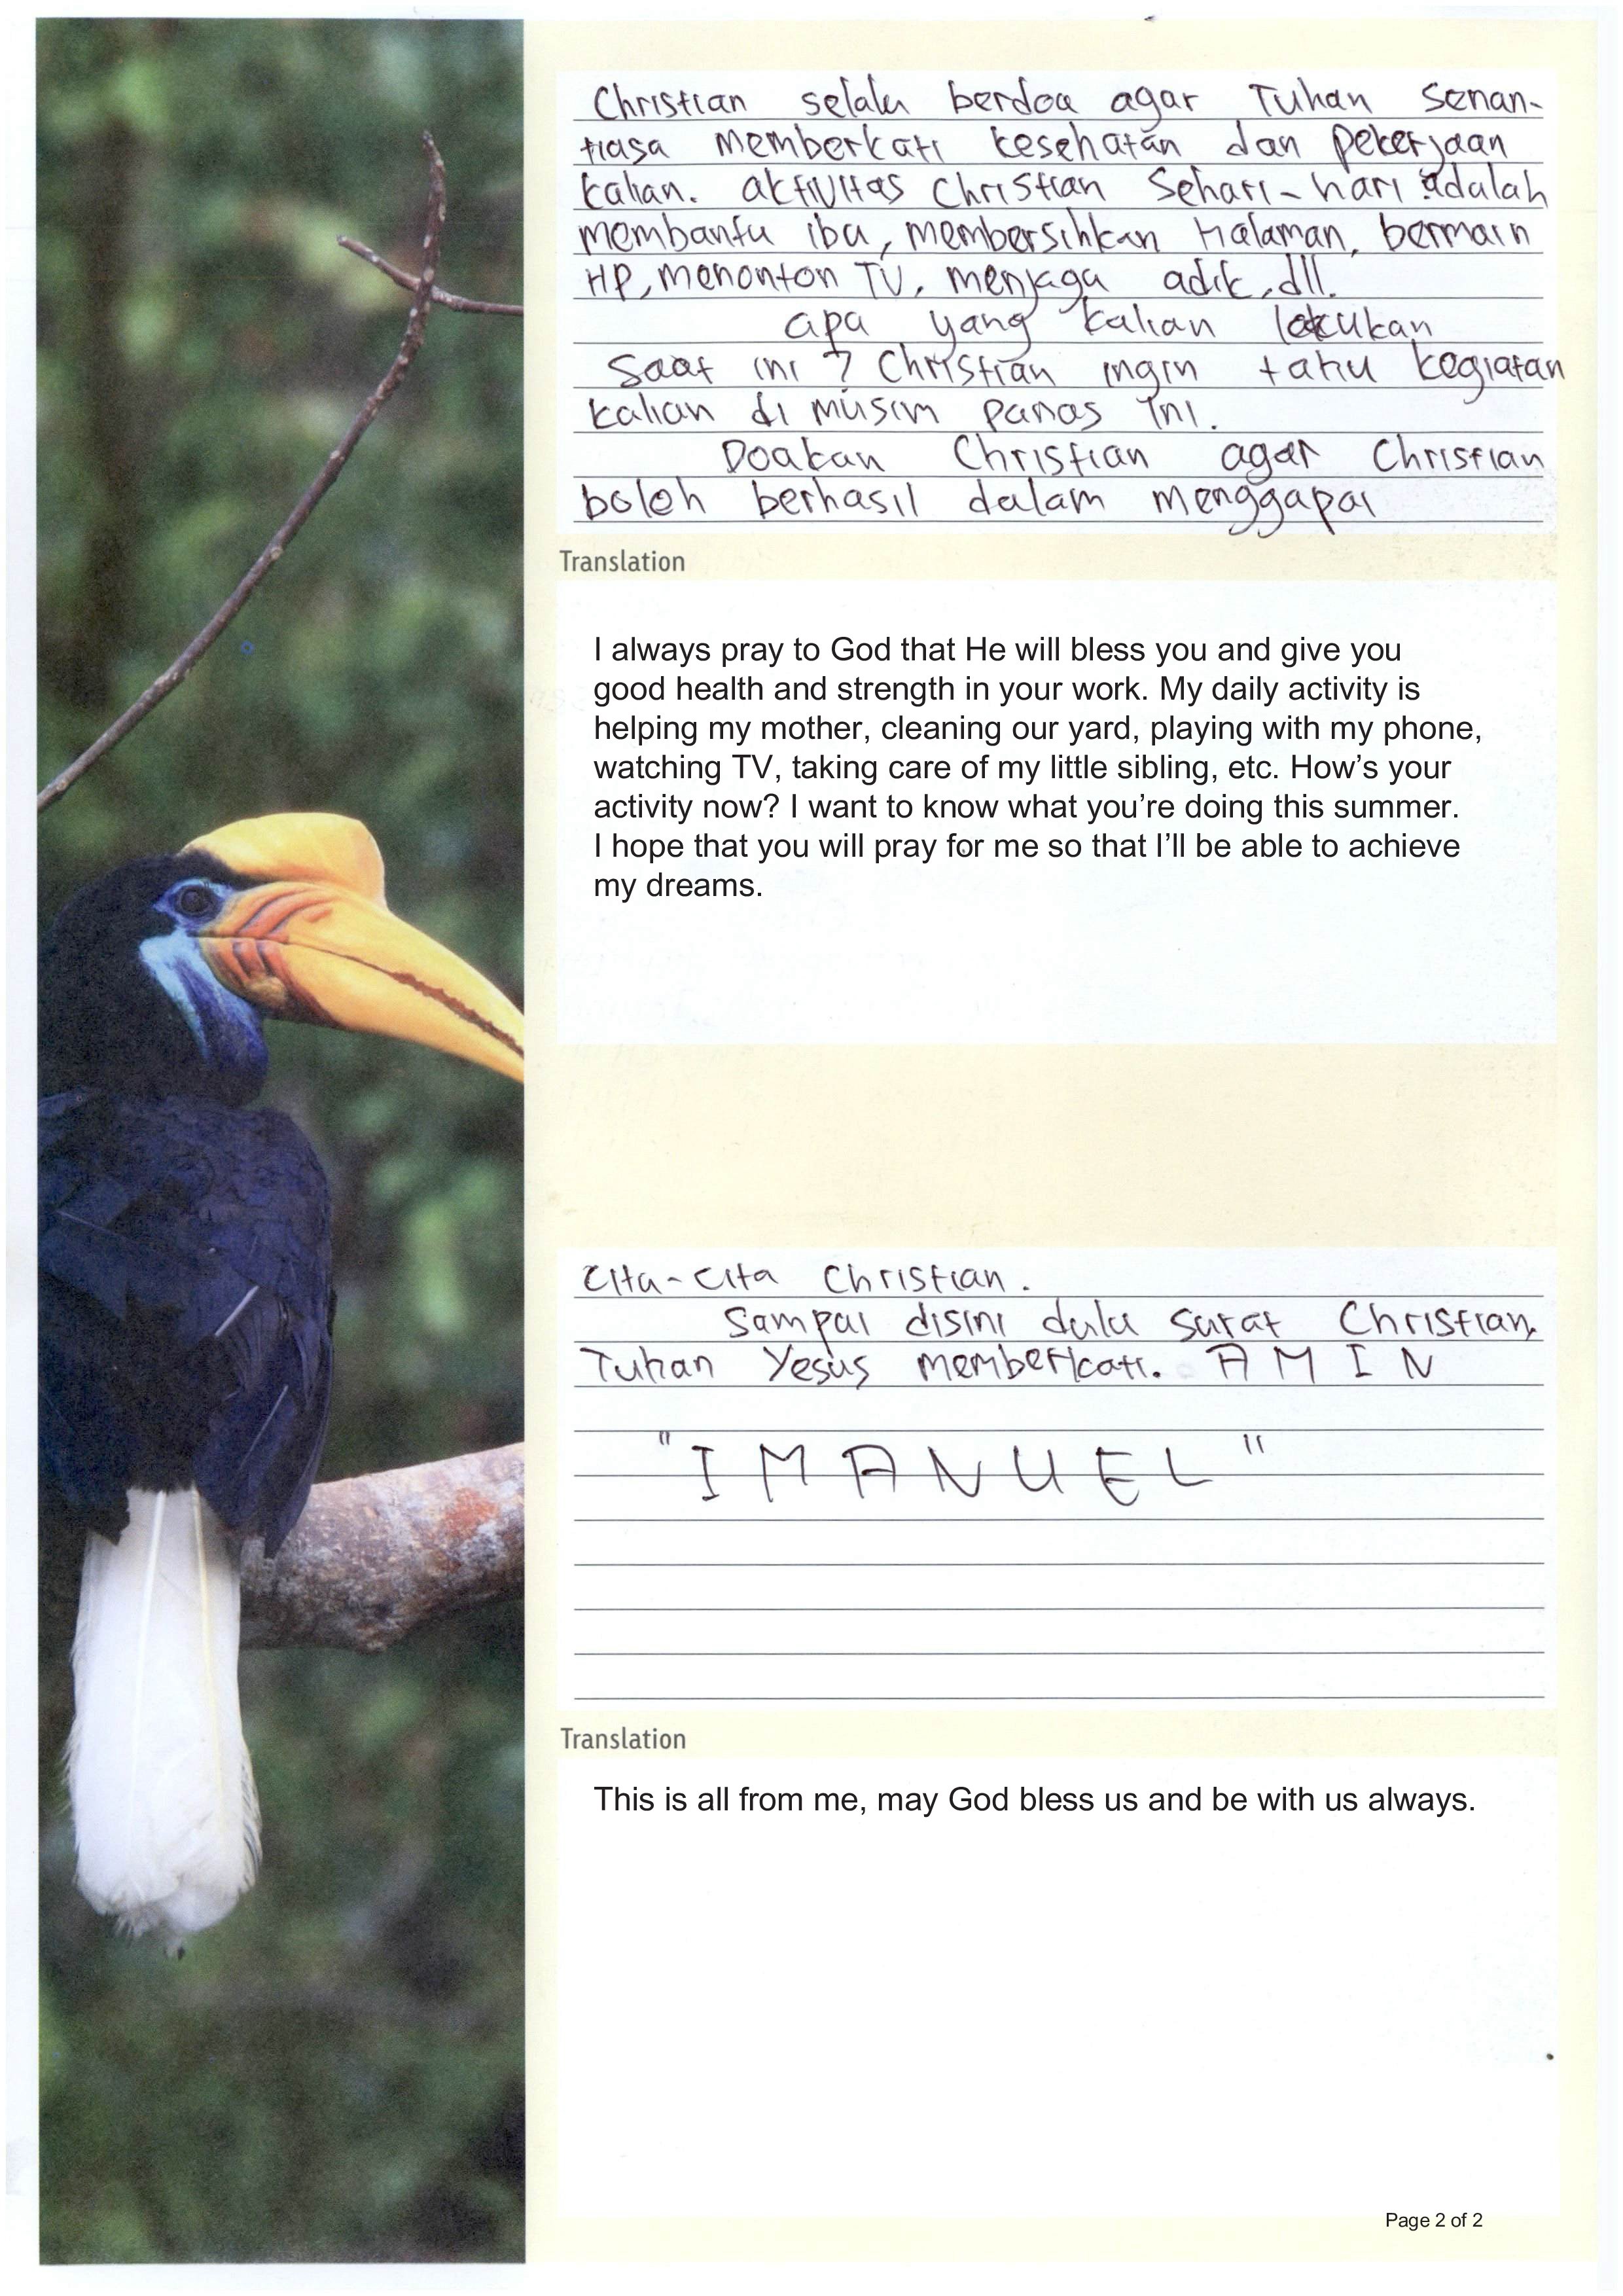 Christian selalu berdoa agar Tuhan senan-
tiasa memberkati kesehatan dan pekerjaan
kalian. aktivitas Christian sehari-hari adalah
membantu ibu, membersihkan halaman, bermain
HP, menonton TV, menjaga adik, dll.
apa yang kalian lakukan
saat ini ? Christian ingin tahu kegiatan
kalian di musim panas ini.
Doakan Christian agar Christian
boleh berhasil dalam menggapai
Translation
I always pray to God that He will bless you and give you
good health and strength in your work. My daily activity is
helping my mother, cleaning our yard, playing with my phone,
watching TV, taking care of my little sibling, etc. How’s your
activity now? I want to know what you’re doing this summer.
I hope that you will pray for me so that I’ll be able to achieve
my dreams.
Cita-cita Christian.
Sampai disini dulu surat Christian.
Tuhan Yesus memberkati. AMIN
"IMANUEL"
Translation
This is all from me, may God bless us and be with us always.
Page 2 of 2